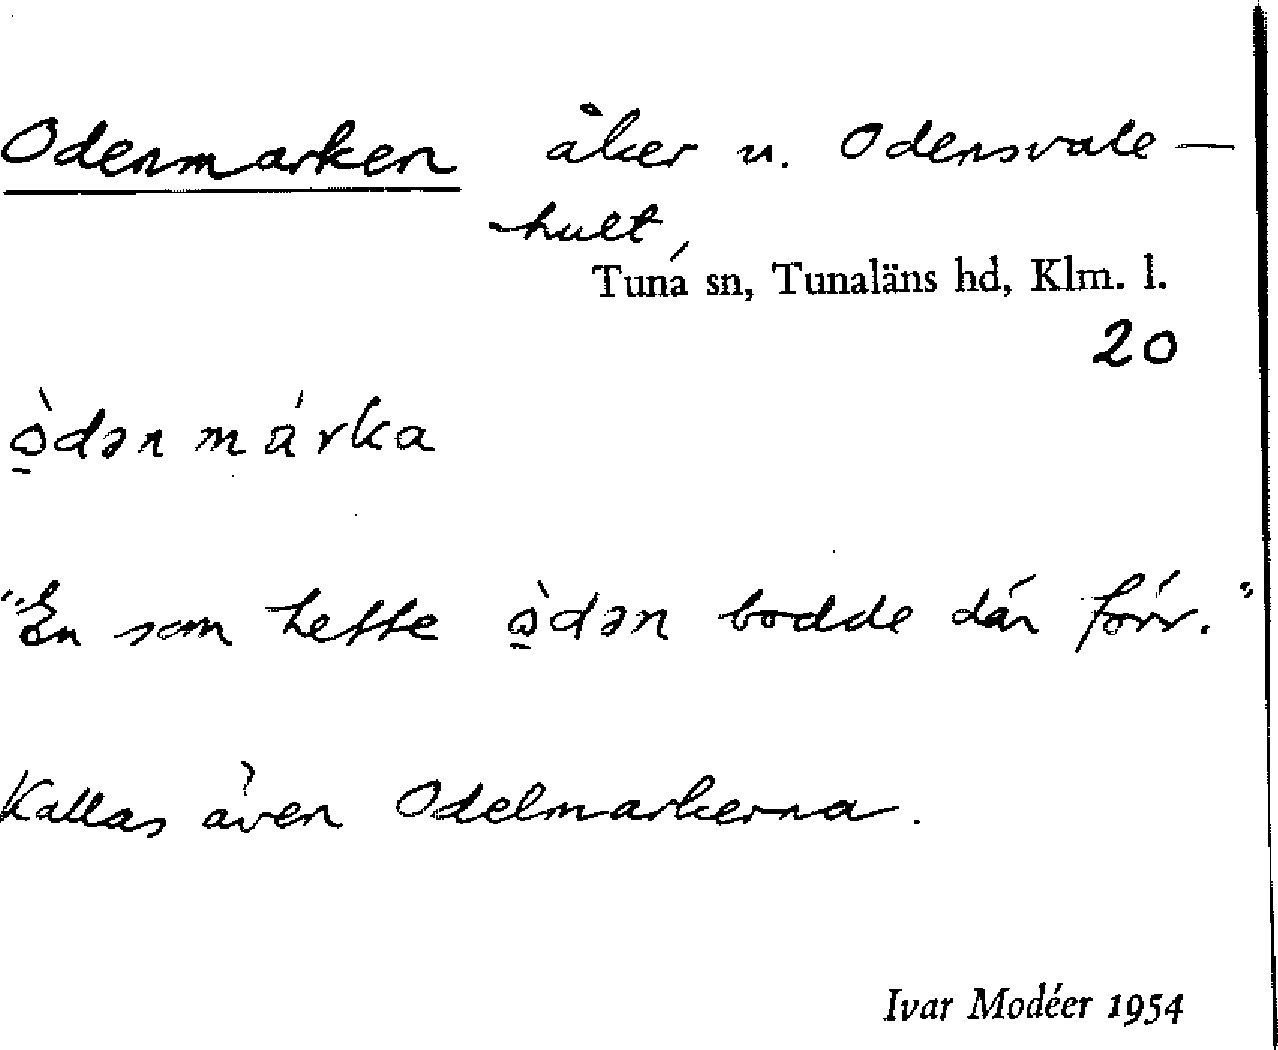 Odenmarken åker u. Odensvale-
-hult,
Tuna sn, Tunaläns hd, Klm. l.
20
ò̱dən márka
"En som hette ò̱dən bodde där förr."
Kallas även Odelmarkerna.
Ivar Modéer 1954